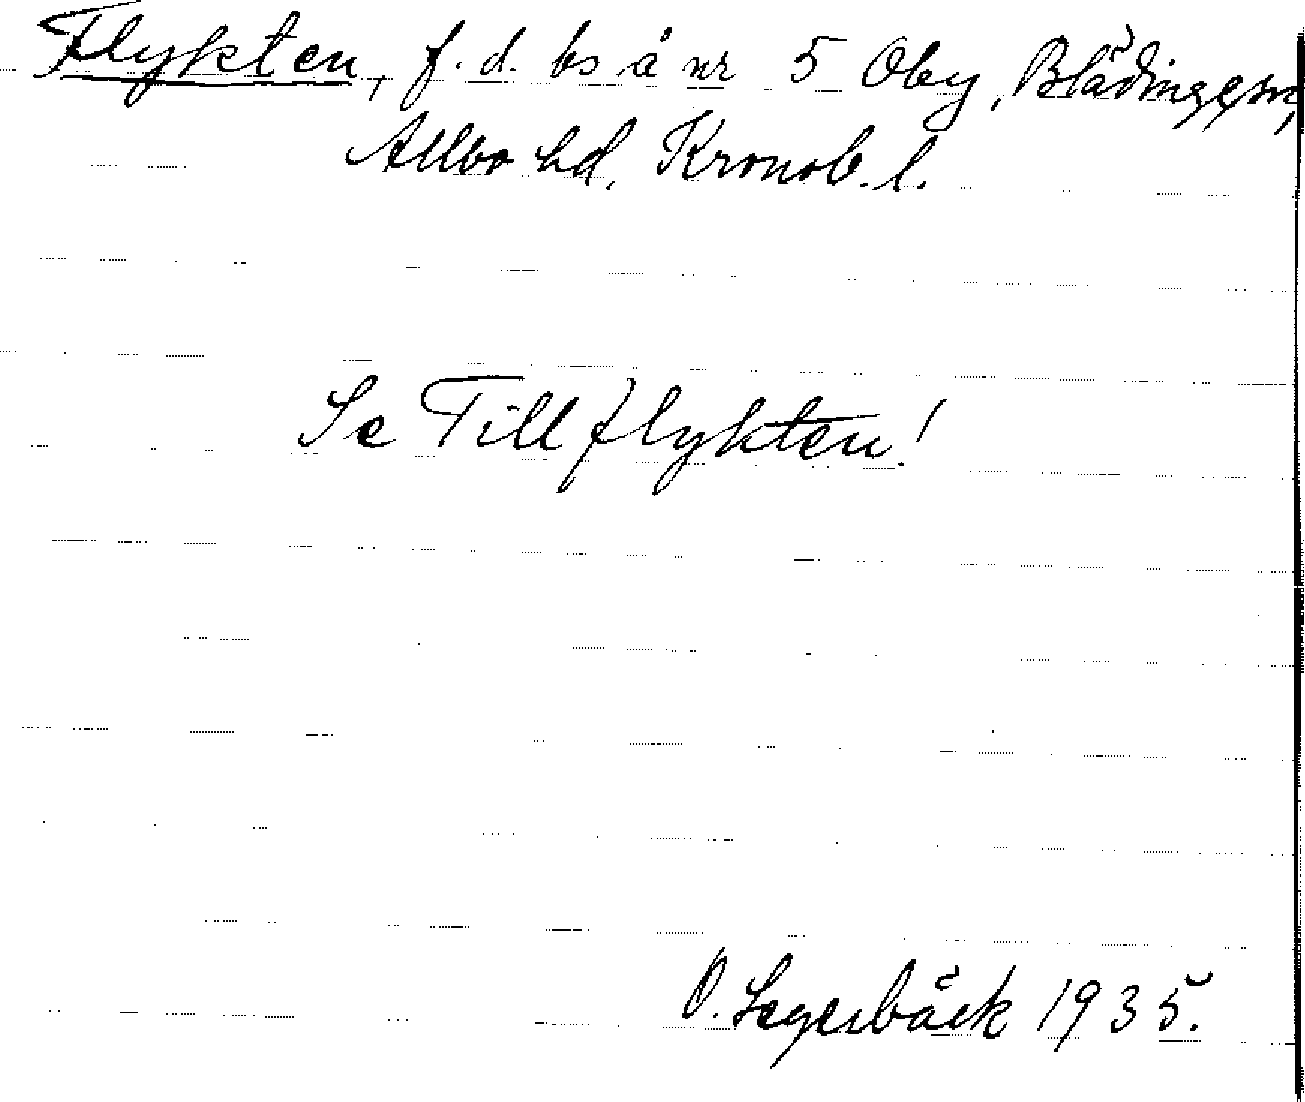 Flykten, f.d. bs å nr 5 Oby, Blädinge sn,
Allbo hd, Kronob. l.
Se Tillflykten!
O. Segerbäck 1935.